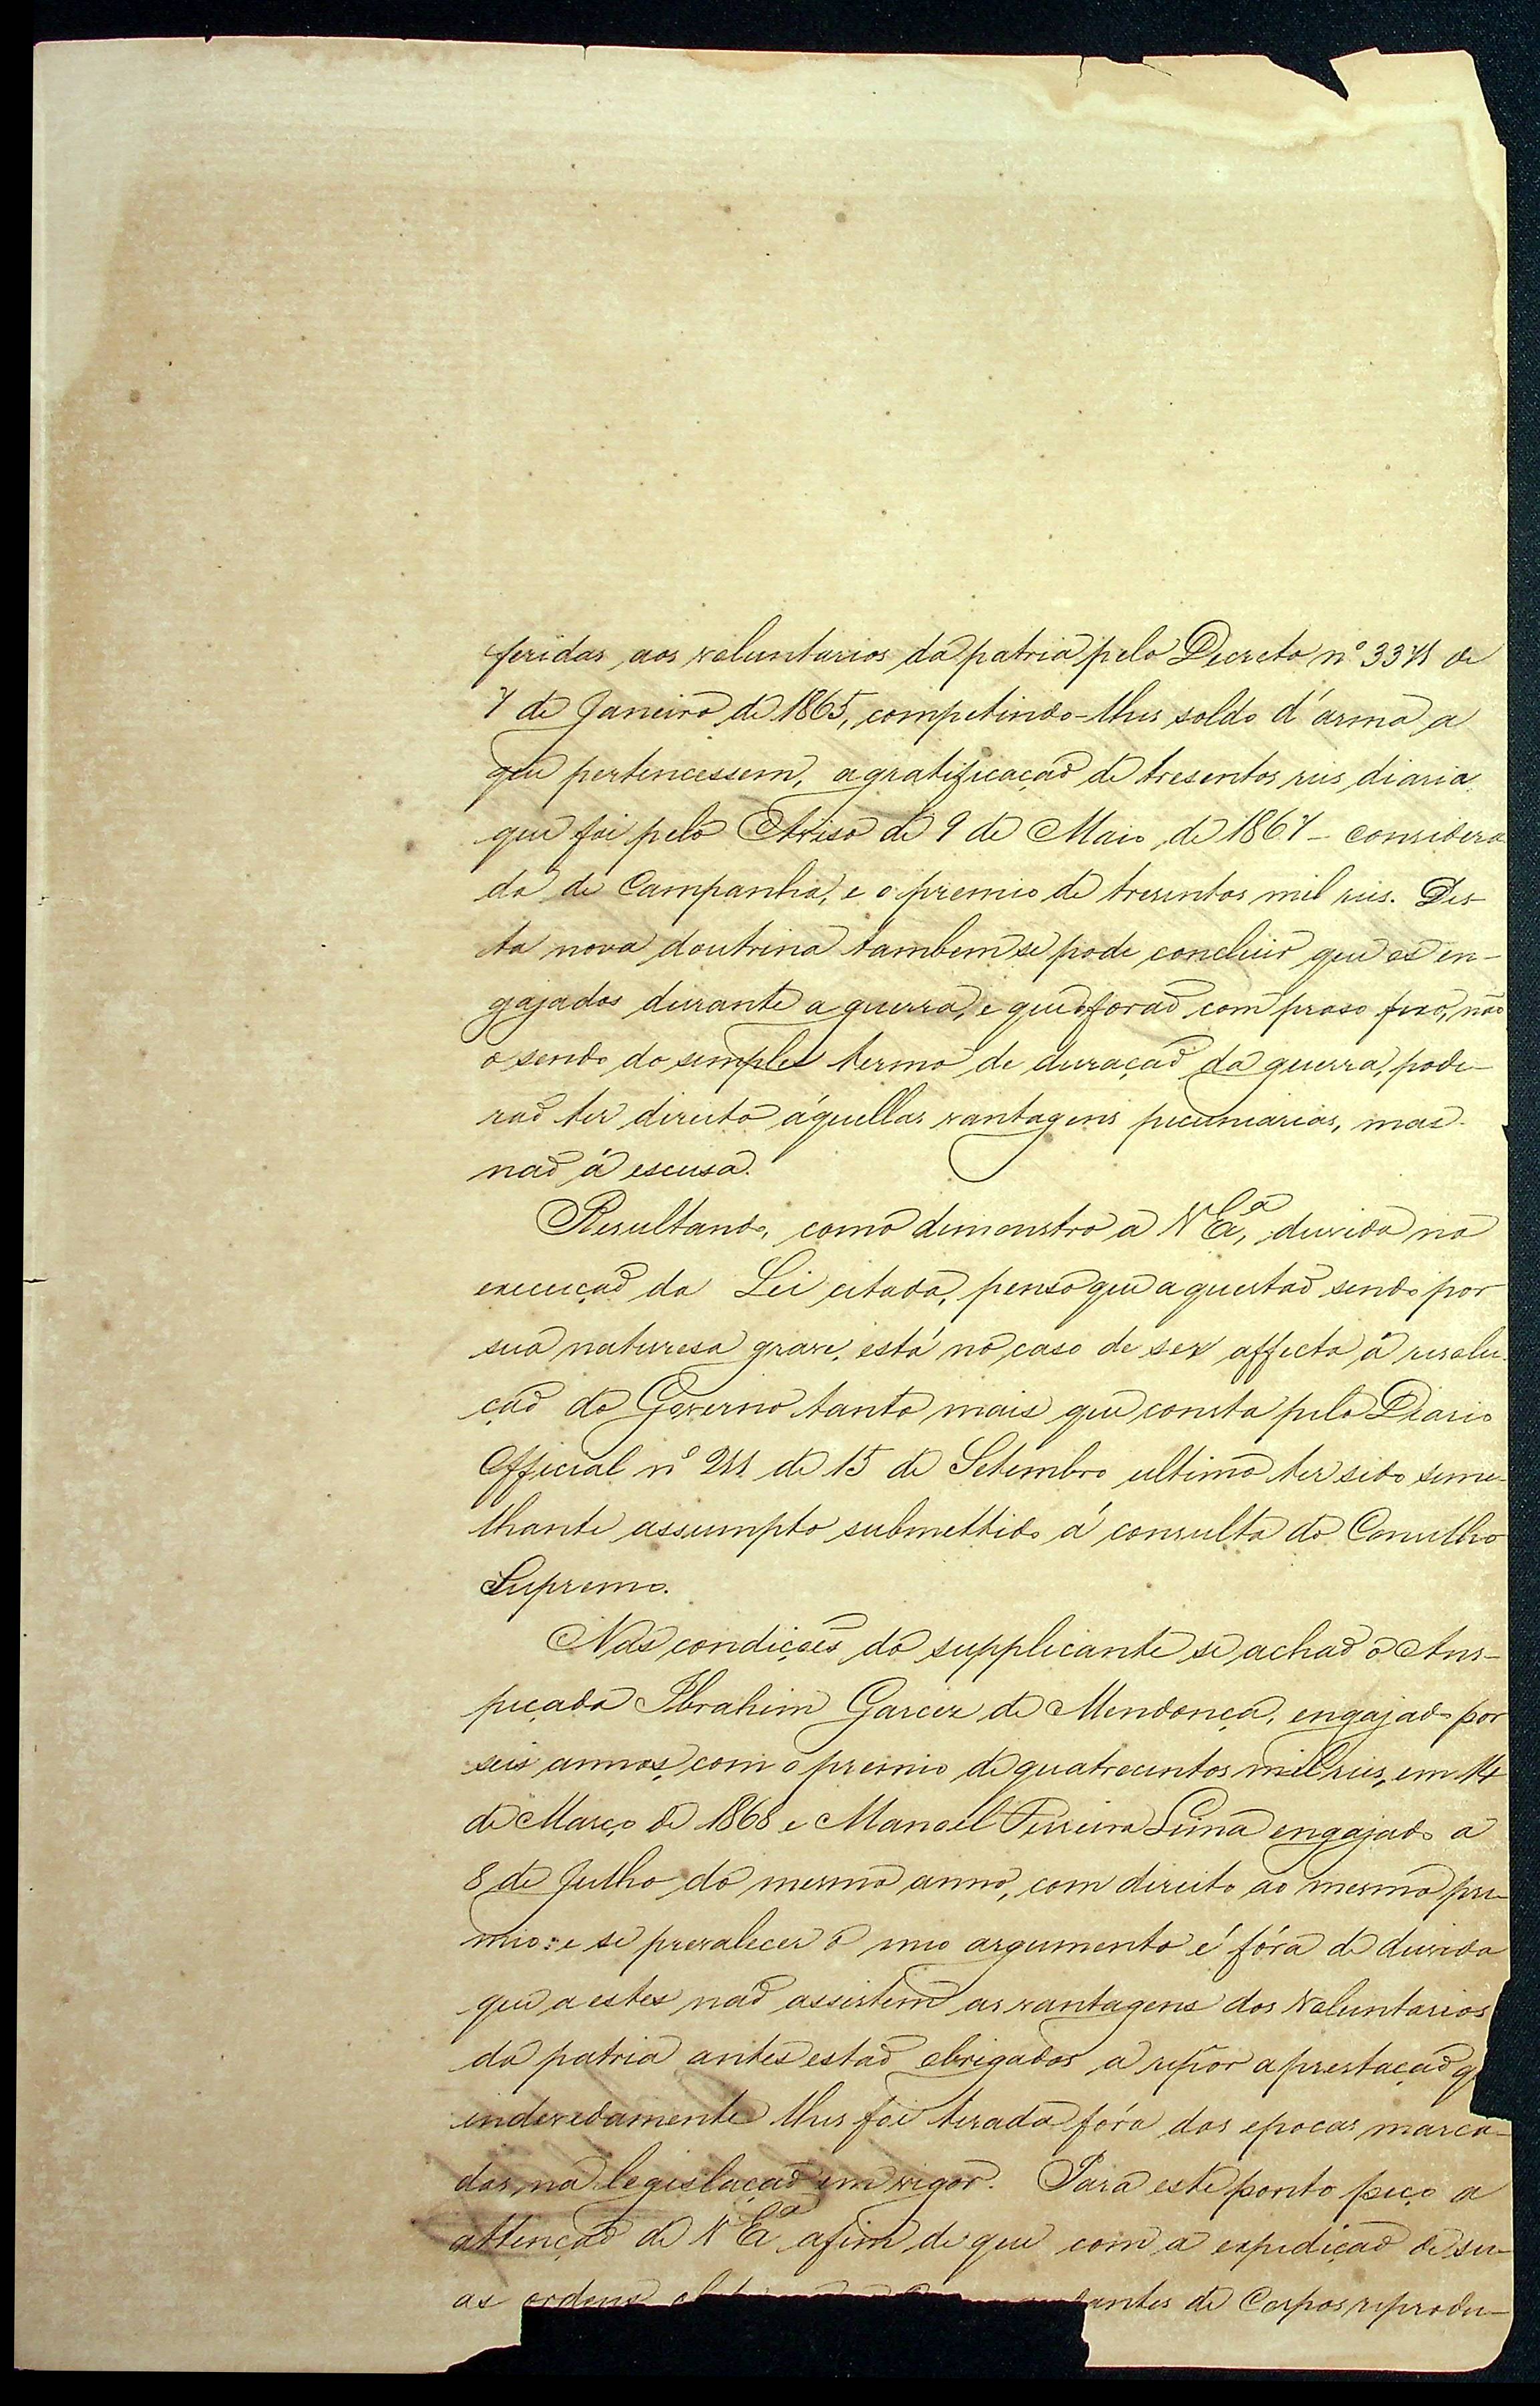 feridas aos voluntarios da patria pelo Decreto nº 3371 de
7 de Janeiro de 1865, competindo-lhes soldo d'arma a
que pertencessem, a gratificação de tresentos reis diaria
que foi pelo Aviso de 9 de Maio de 1867 - considera
da de Campanha, e o premio de tresentos mil reis. Des-
ta nova doutrina tambem se pode concluir que os en-
gajados durante a guerra, e que o forão com praso fixo, não
o sendo do simples termo de duração da guerra, pode-
rão ter direito áquellas vantagens pecuniarias, mas
não á escusa.
Resultando, como demonstro a V Exª, duvida na
execução da Lei citada, penso que a questão sendo por
sua naturesa grave, está no caso de ser affecta á resolu-
ção do Governo tanto mais que consta pelo Diario
Official nº 211 de 15 de Setembro ultimo ter sido seme-
lhante assumpto submettido á consulta do Conselho
Supremo.
Nas condições do supplicante se achão o Ans-
peçada Ibrahim Garcez de Mendonça, engajado por
seis annos, com o premio de quatrocentos mil reis, em 14
de Março de 1868 e Manoel Ferreira Lima engajado a
8 de Julho do mesmo anno, com direito ao mesmo pre-
mio: e se prevalecer o meo argumento é fóra de duvida
que a estes não assistem as vantagens dos Voluntarios
da patria antes estão obrigados a repôr a prestação q
indevidamente lhes foi tirada fóra das epocas marca-
das na legislação em vigor. Para este ponto peço a
attenção de V Exª afim de que com a expedição de su-
as ordens antes de Corpos reprodu-